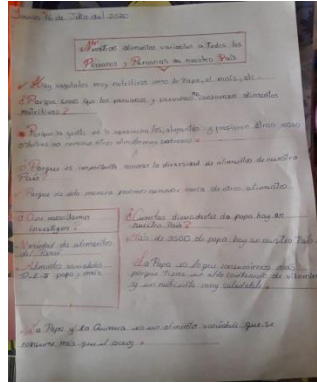 Jueves 16 de Julio del 2020
Nuestros alimentos variados a Todos los
Peruanos y Peruanas de nuestro País
Hay vegetales muy nutritivos como la Papa, el maíz, etc.
Porque crees que los peruanos y peruanas no consumen alimentos
nutritivos?
Porque no
Porque es importante conocer la diversidad de alimentos de nuestro
País?
Porque de esta manera podemos conocer mas de otros alimentos.
Que necesitamos
investigar?
Variedad de alimentos
del Perú
Alimentos variados
papa y maiz
Cuantas diversidades de papa hay en
nuestro País?
Mas de 3500 de papa hay en nuestro País
La Papa es lo que consumimos más
porque tiene un alto contenido de vitaminas
y es nutritivo muy saludable.
La Papa y la Quinua es un alimento variable que se
consume mas que el arroz